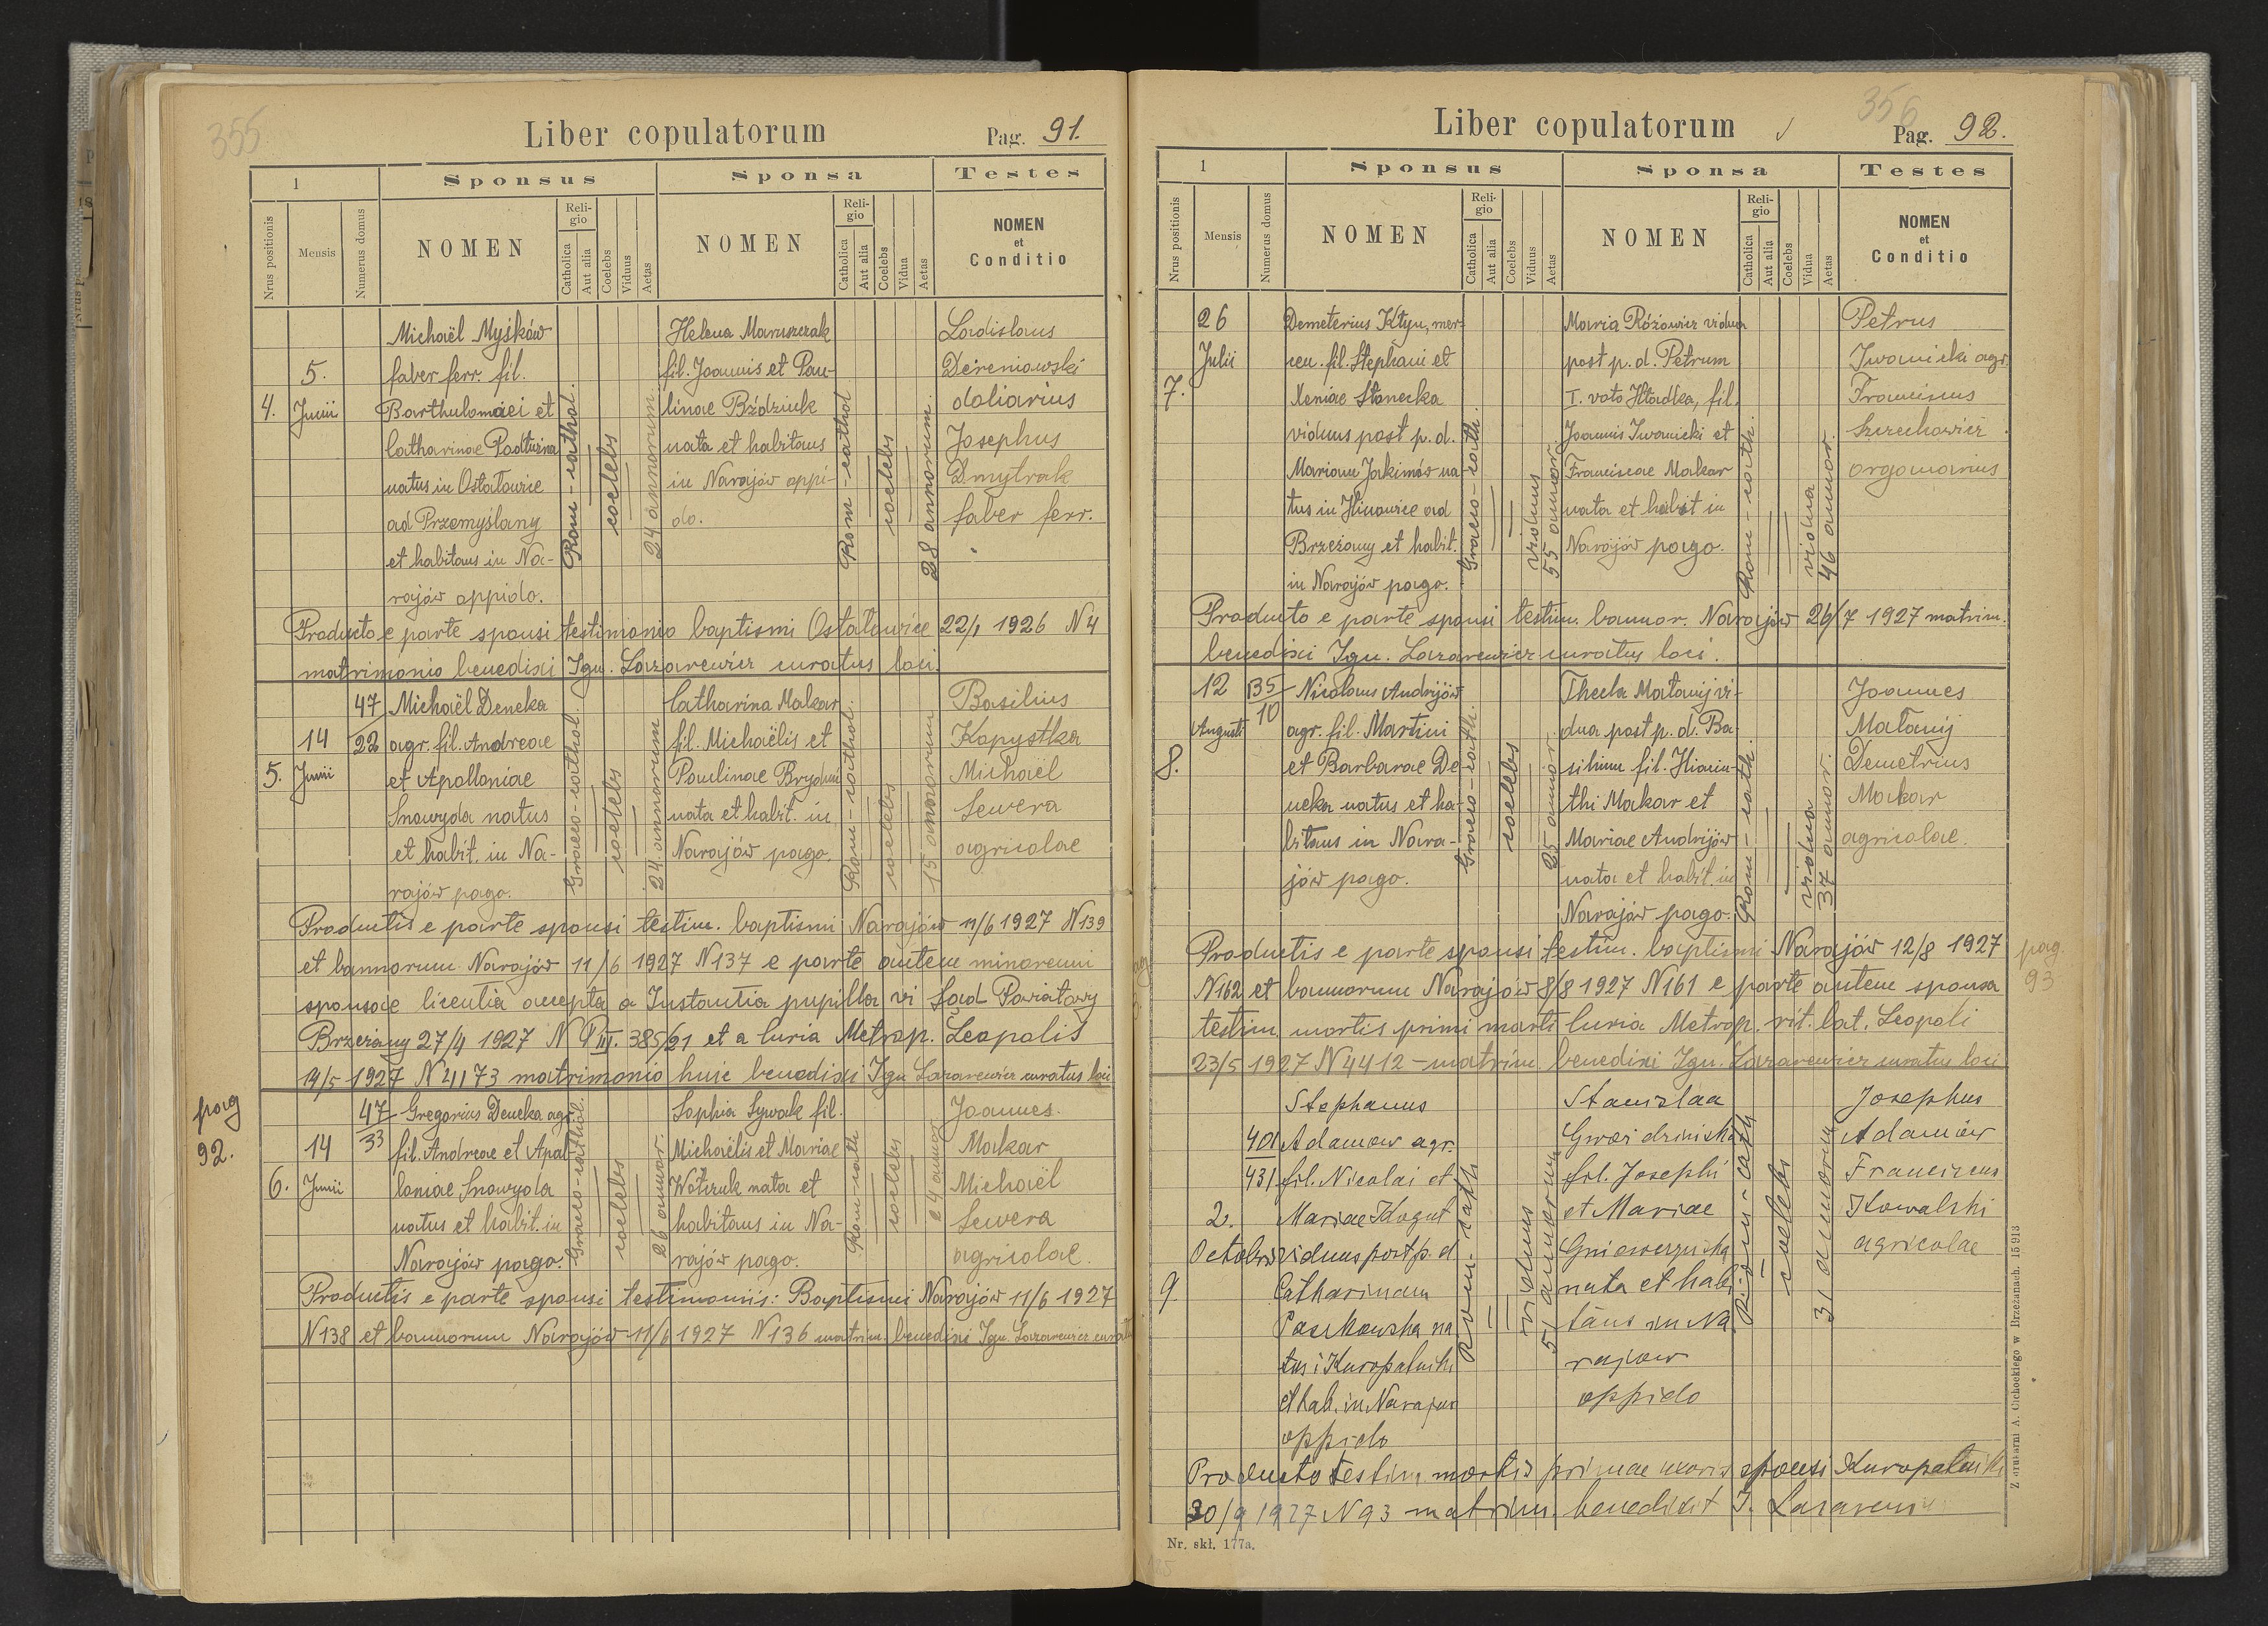 355
Liber copulatorum
Pag. 91.
1
Sponsus
Sponsa
Testes
Nrus positionis
Mensis
Numerus domus
NOMEN
Religio
Catholica
Aut alia
Coelebs
Viduus
Aetas
NOMEN
Religio
Catholica
Aut alia
Coelebs
Vidua
Aetas
NOMEN
et
Conditio
4.
5.
Junii
Michaël Myśków
faber ferr. fil.
Barthulomaei et
Catharinae Padturina
natus in Ostałowice
ad Przemyślany
et habitans in Na-
rajów oppido.
Rom-cathol.
coelebs
24 annorum
Helena Maruszczak
fil. Joannis et Pau-
linae Bździuk
nata et habitans
in Narajów oppi-
do.
Rom-cathol
coelebs
28 annorum.
Ladislaus
Dereniowski
doliarius
Josephus
Dmytrak
faber ferr.
Producto e parte sponsi testimonio baptismi Ostałowice 22/1 1926 N 4
matrimonio benedixi Ign. Lazarewicz curatus loci.
5.
14
Junii
47
22
Michaël Deneka
agr. fil. Andreae
et Apolloniae
Snowyda natus
et habit. in Na-
rajów pago.
Graeco-cathol.
coelebs
24 annorum
Catharina Makar
fil. Michaëlis et
Paulinae Brydun
nata et habit. in
Narajów pago.
Rom-cathol.
coelebs
15 annorum
Basilius
Kapystka
Michaël
Sewera
agricolae
Productis e parte sponsi testim. baptismi Narajów 11/6 1927 N 139
et bannorum Narajów 11/6 1927 N 137 e parte autem minorenni
sponsae licentia accepta a Instantia pupillar vi Sąd Powiatowy
Brzeżany 27/4 1927 N P III. 385/21 et a Curia Metrop. Leopolis
19/5 1927 N 4173 matrimonio huic benedixi Ign Lazarewicz curatus loci
pag
92.
6.
14
Junii
47
33
Gregorius Deneka agr.
fil. Andreae et Apol-
loniae Snowyda
natus et habit. in
Narajów pago.
Graeco-cathol.
coelebs
26 annor.
Sophia Sywak fil.
Michaëlis et Mariae
Wołczuk nata et
habitans in Na-
rajów pago.
Rom-cath
coelebs
24 annor
Joannes
Makar
Michaël
Sewera
agricolae.
Productis e parte sponsi testimoniis: Baptismi Narajów 11/6 1927
N 138 et bannorum Narajów 11/6 1927 N 136 matrim. benedixi Ign. Lazarewicz curat
356
Liber copulatorum
Pag. 92.
1
Sponsus
Sponsa
Testes
Nrus positionis
Mensis
Numerus domus
NOMEN
Religio
Catholica
Aut alia
Coelebs
Viduus
Aetas
NOMEN
Religio
Catholica
Aut alia
Coelebs
Vidua
Aetas
NOMEN
et
Conditio
7.
26
Julii
Demeterius Kłyn, mer-
cen. fil. Stephani et
Xeniae Stanecka
viduus post p. d.
Mariam Jakimów na
tus in Hinowice ad
Brzeżany et habit.
in Narajów pago.
Graeco-cath.
viduus
55 annor.
Maria Różowicz vidua
post p. d. Petrum
I. voto Hładka, fil.
Joannis Iwanicki et
Franciscae Makar
nata et habit in
Narajów pago.
Rom-cath.
vidua
46 annor.
Petrus
Iwanicki agr.
Franciscus
Szzechowicz
organarius
Producto e parte sponsi testim. bannor. Narajów 26/7 1927 matrim.
benedixi Ign. Lazarewicz curatus loci.
8.
12
Augusti
35
10
Nicolaus Andrijów
agr. fil. Martini
et Barbarae De-
neka natus et ha-
bitans in Nara-
jów pago.
Graeco-cath.
coelebs
25 annor.
Thecla Matanij vi-
dua post p. d. Ba-
silium fil. Hiacin-
thi Makar et
Mariae Andrijów
nata et habit. in
Narajów pago.
Rom-cath.
vidua
37 annor.
Joannes
Matanij
Demetrius
Makar
agricolae.
Productis e parte sponsi testim. baptismi Narajów 12/8 1927
N 162 et bannorum Narajów 8/8 1927 N 161 e parte autem sponsa
testim. mortis primi mariti Curia Metrop. rit. lat. Leopoli
23/5 1927 N 4412 - matrim. benedixi Ign. Lazarewicz curatus loci
pag.
93
9
2.
Octobris
401
431
Stephanus
Adamow agr.
fil. Nicolai et
Mariae Kogut
viduus post p. d
Catharinam
Paszkowska na
tus i Kuropatniki
et hab. in Narajow
oppido
Rom. cath
viduus
51 annorum
Stanislaa
Gwoździnska
fil. Josephi
et Mariae
nata et habi
tans in Na
rajow
oppido
coelebs
31 annorum
Josephus
Adamów
Franciscus
Kowalski
agricolae
Producto testim. mortis primae uxoris sponsi Kuropatniki
30/9 1927 N 93 matrim. benedixit I. Lazarewicz
Nr. skł. 177a.
Z drukarni A. Cichockiego w Brzeżanach. 15913